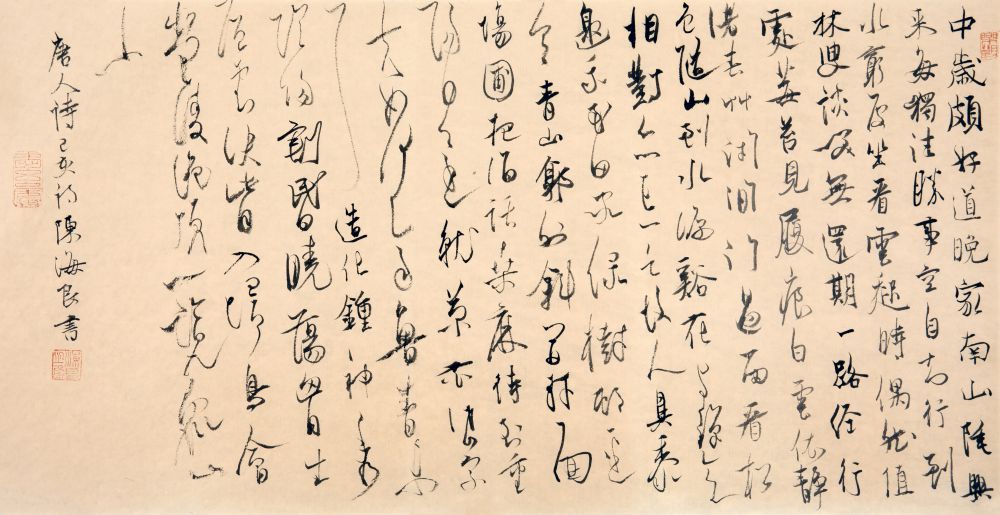 中歲頗好道晚家南山陲興
来每獨往勝事空自知行到
水窮處坐看雲起時偶然值
林叟談笑無還期一路經行
處莓苔見履痕白雲依靜
渚春艸闭閒门過雨看松
色隨山到水源谿花与禅意
相對亦忘言故人具黍
邀我至田家绿樹邨边
合青山郭外斜開轩面
場圃把酒話桑麻待到重
陽日还来就菊花岱宗
夫如何齐魯青未
了
造化鍾神秀
陰陽割昏曉蕩胸生
层云決眥入归鳥會
當凌绝顶一览众山
小
唐人诗己亥陳海良書